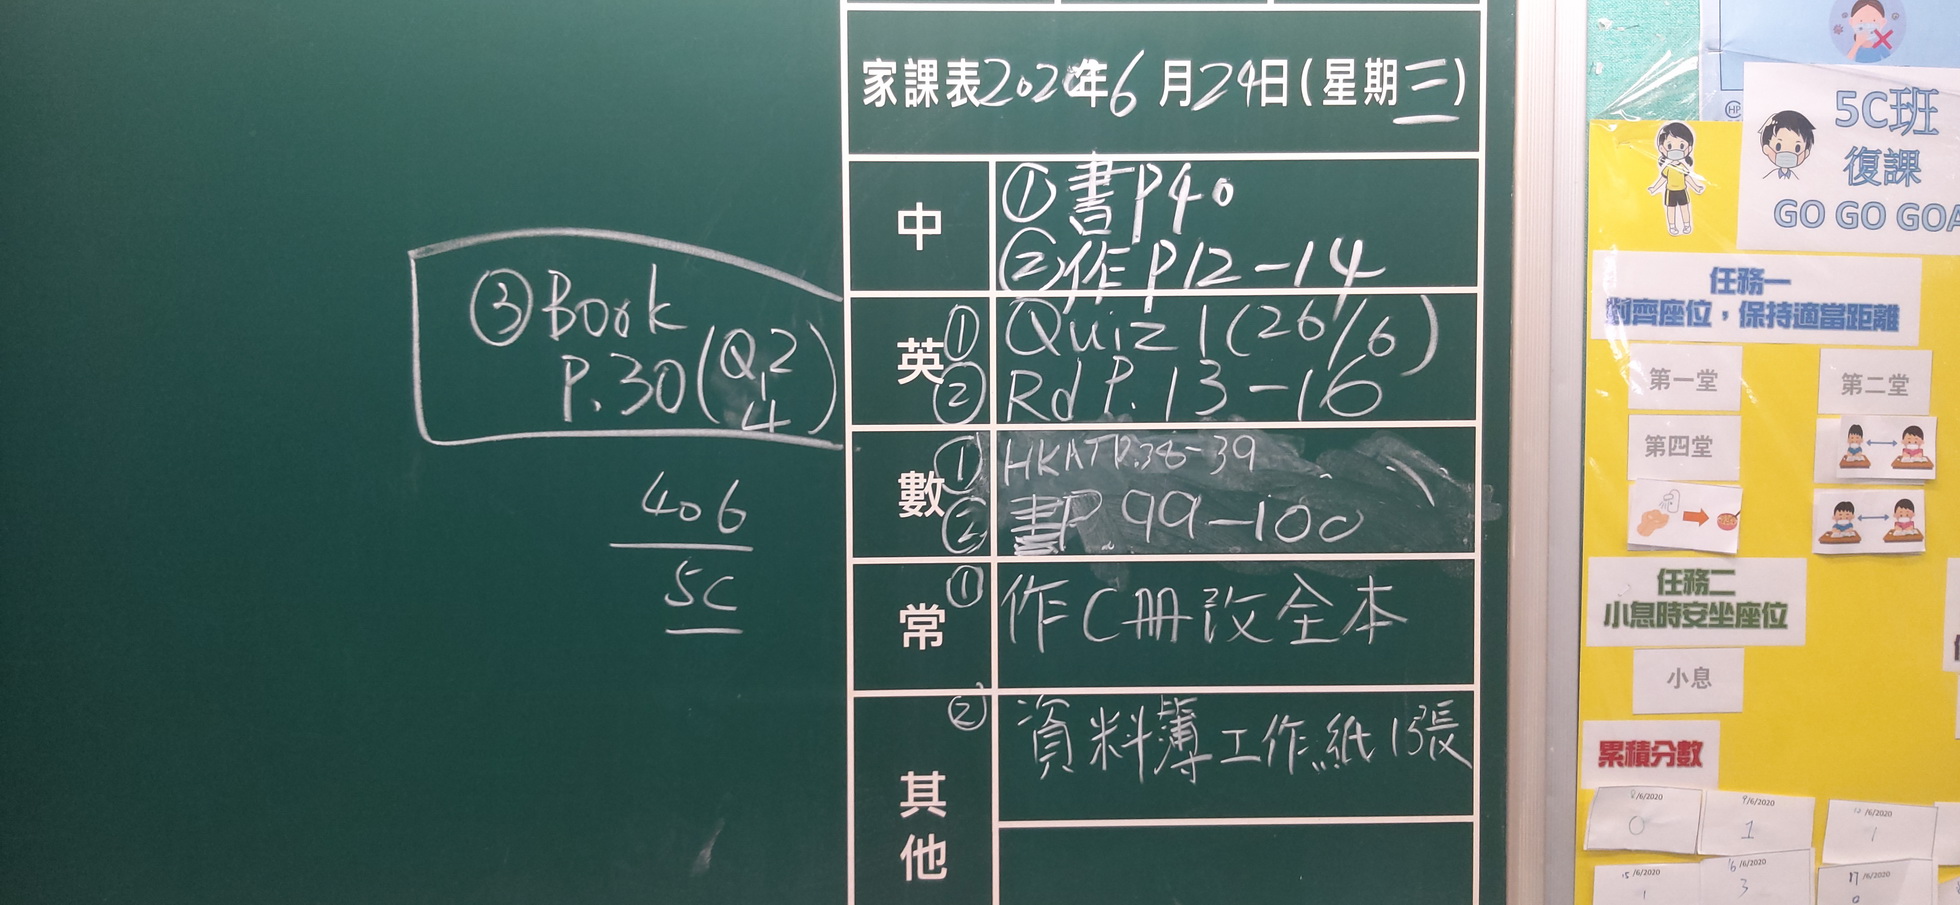 家課表2020年6月24日(星期三)
中
①書P40
②作P12-14
英
①Quiz 1(26/6)
②Rd P.13-16
③Book
P.30(Q2,
4)
數
①HKATP.38-39
②書P.99-100
406
5C
常
①作C冊改全本
其他
②資料簿工作紙15張
5C班
復課
GO GO GOA
任務一
劃齊座位，保持適當距離
第一堂
第二堂
第四堂
任務二
小息時安坐座位
小息
累積分數
8/6/2020
0
9/6/2020
1
/6/2020
1
15/6/2020
1
16/6/2020
3
17/6/2020